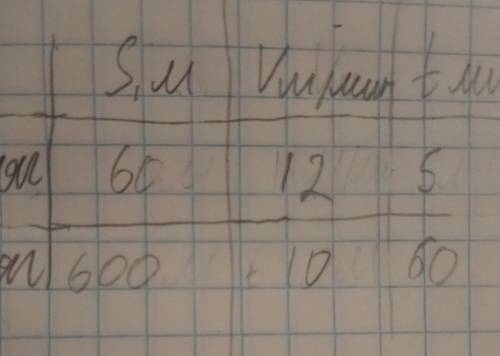 S, м V м/мин t ми
ял 60 12 5
ял 600 10 60